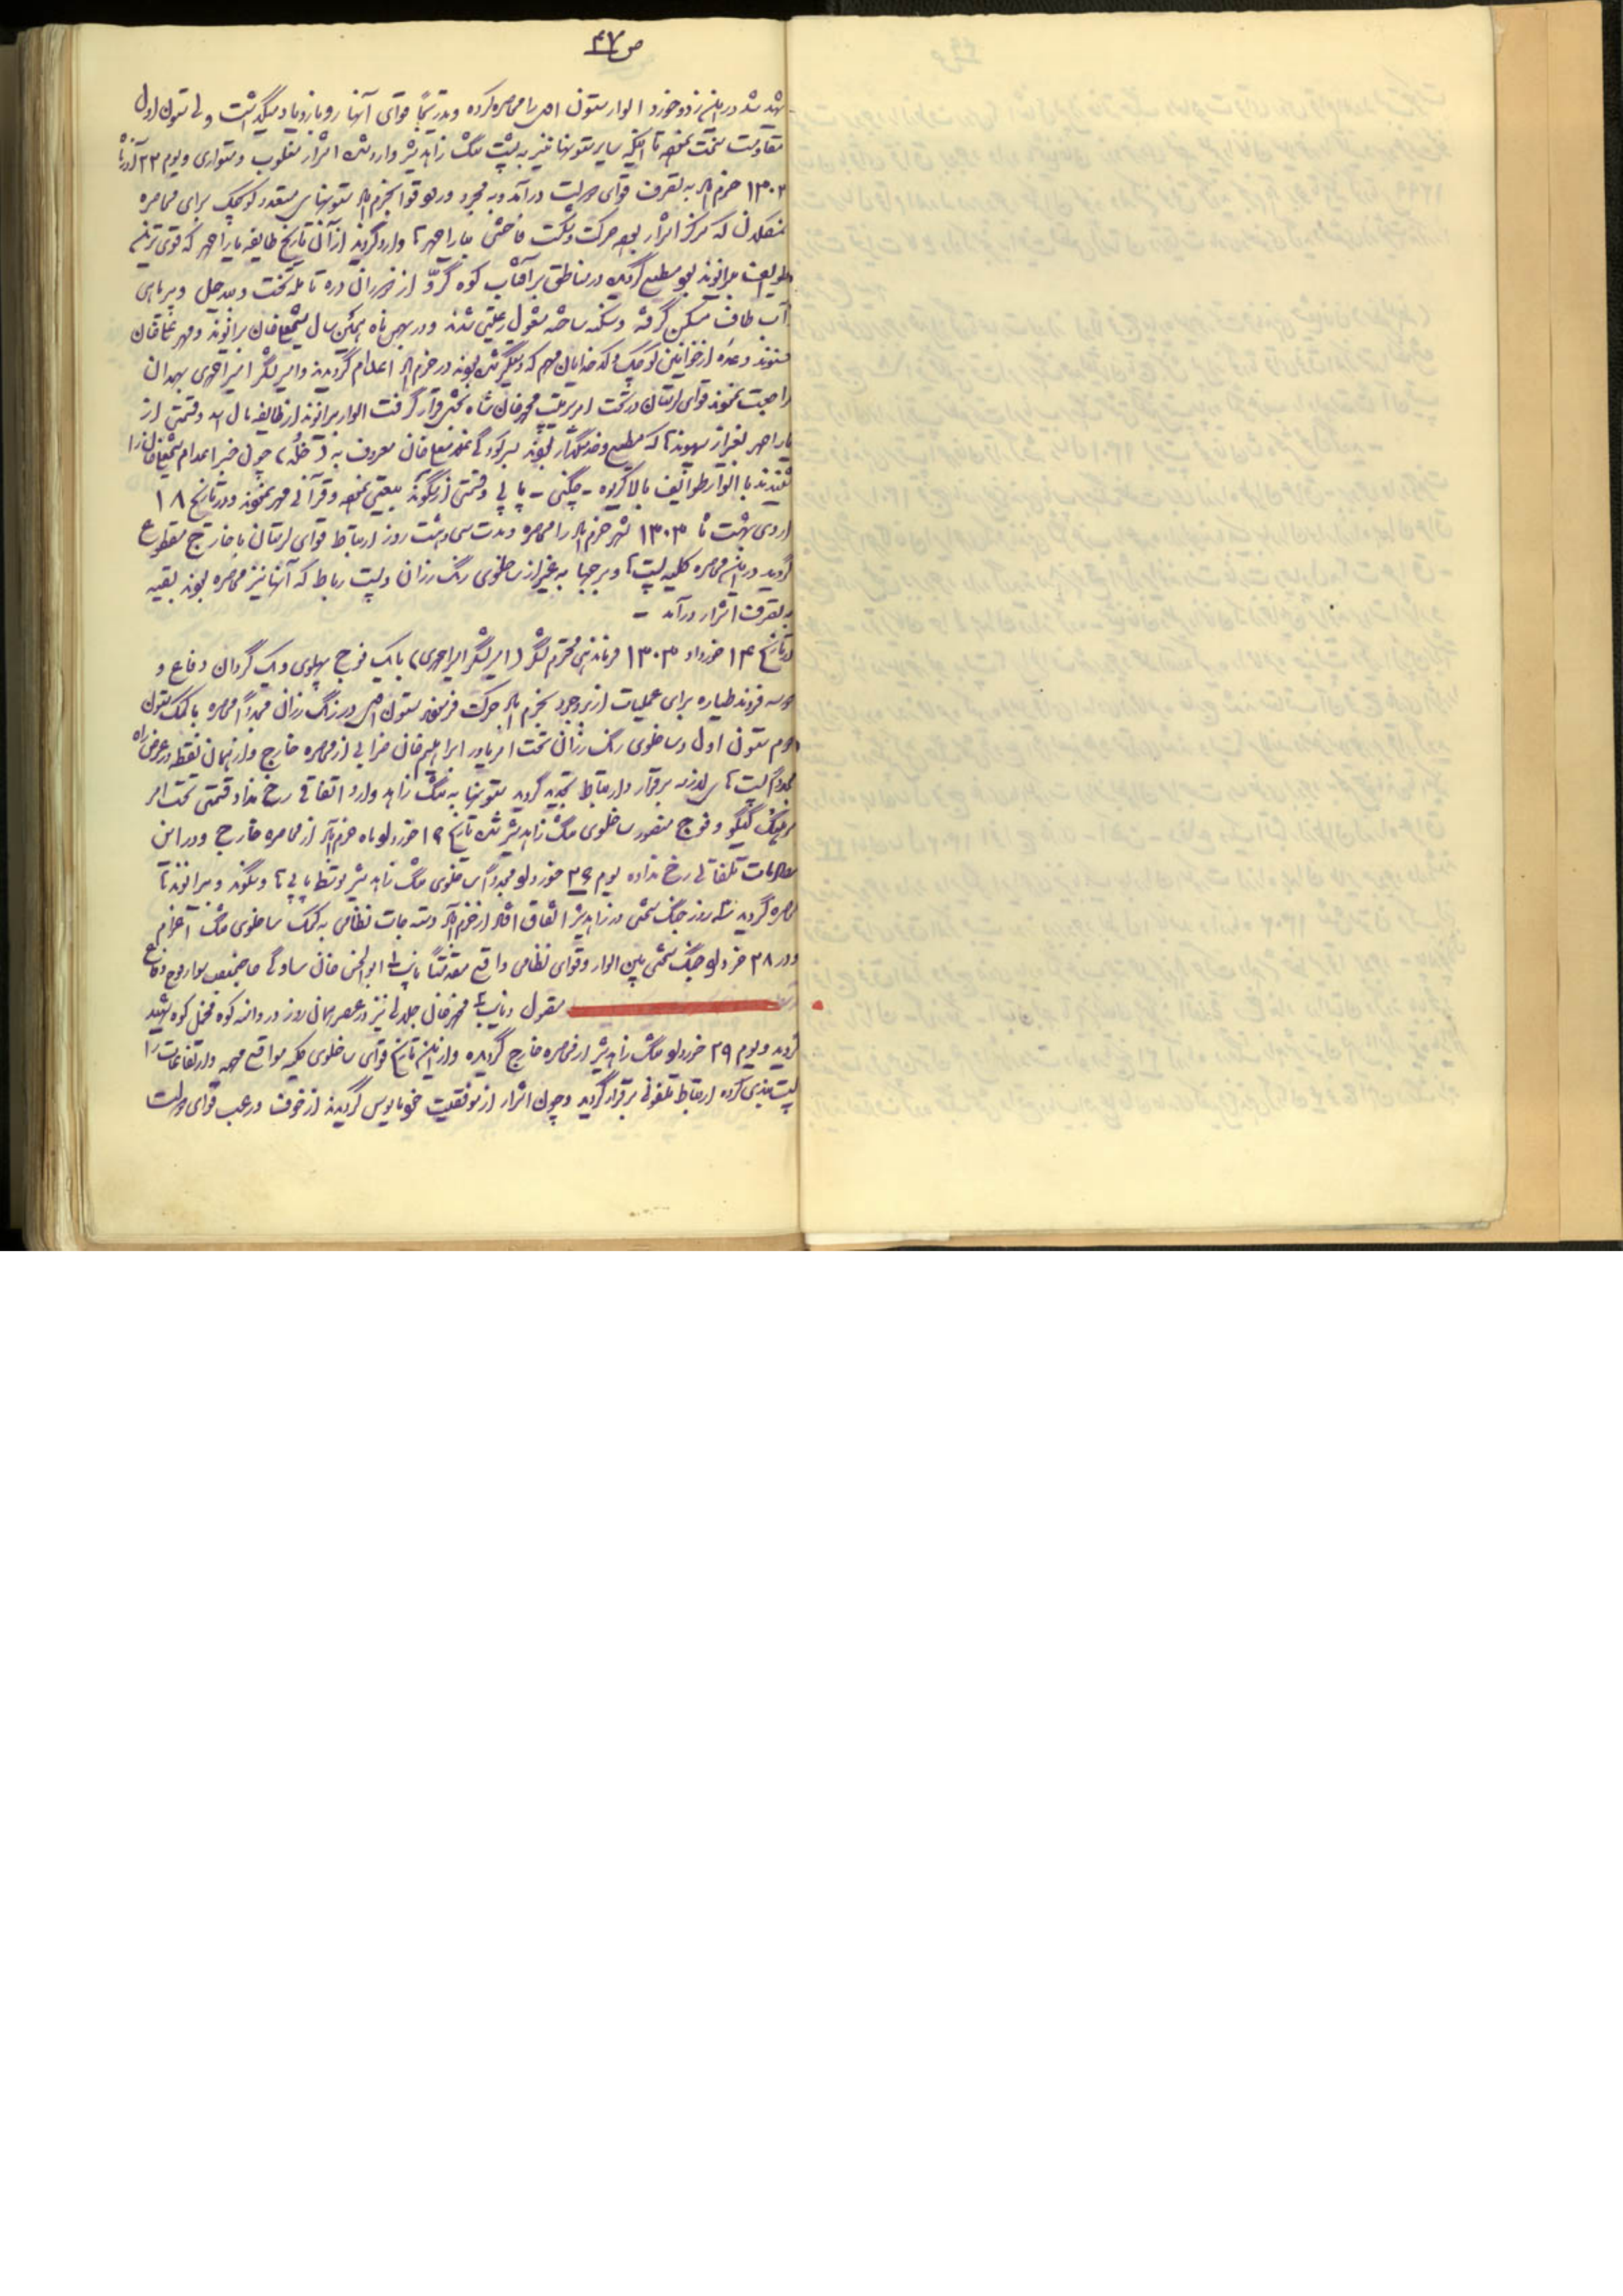 ص ۴۷
شهید شد در این زد و خورد الوار ستون اول را محاصره کرده و بتدریج قوای آنها رو بازدیاد میگذاشت ولی ستون اول
مقاومت سخت نموده تا اینکه سایر ستونها نیز به پشت تنگ زاهد شیر وارد شده اشرار مغلوب و متواری و یوم ۲۳ آذرماه
۱۳۰۲ خرم آباد به تصرف قوای دولت درآمد و به مجرد ورود قوا بخرم آباد ستونهای متعدد کوچک برای محاصره
که مرکز اشرار بوده حرکت و شکست فاحشی بیاراحمدها وارد گردید از آن تاریخ طایفه یاراحمد که قوی ترین
طوایف بیرانوند بود مطیع گردیده در مناطق برآفتاب کوه گرّد از دره تا تخت و
آب طاف مسکن گرفته و مشغول رعیتی شدند و در بهمن ماه همین سال شیخعلی خان بیرانوند و مهرعلی خان
حسنوند و عده از خوانین کوچک و کدخدایان مهم که دستگیر شده بودند در خرم آباد اعدام گردیدند و امیرلشگر امیراحمدی بهمدان
مراجعت نمودند قوای لرستان در تحت امر سرتیپ محمدخان شاه بختی قرار گرفت الوار بیرانوند از طایفه مال اسد و قسمتی از
یاراحمد بغیر از که مطیع و خدمتگذار بودند بسرکردگی خان معروف به ( ) چون خبر اعدام شیخعلی خان را
شنیدند با الوار طوایف بالا گریوه - چگنی - پاپی و قسمتی از سگوند بیعتی نموده و قرآنی مهر نمودند و در تاریخ ۱۸
اردی بهشت ماه ۱۳۰۳ شهر خرم آباد را محاصره و مدت سی و هشت روز ارتباط قوای لرستان با خارج مقطوع
گردید در این محاصره کلیه پستها و برجها به غیر از ساخلوی رنگ رزان و پست رباط که آنها نیز محاصره بودند بقیه
به تصرف اشرار درآمد -
در تاریخ ۱۴ خرداد ۱۳۰۳ فرماندهی محترم لشگر (امیر لشگر امیراحمدی) با یک فوج پهلوی و یک گردان دفاع و
دو سه فروند طیاره برای عملیات از بروجرد بخرم آباد حرکت فرمودند ستون اول در رنگ رزان مجدداً محاصره با کمک ستون
دوم ستون اول و ساخلوی رنگ رزان تحت امر یاور ابراهیم خان ضرابی از محاصره خارج و از همان نقطه در عرض راه
مجدداً پستهای لازمه برقرار و ارتباط تجدید گردید ستونها به تنگ زاهد وارد اتفاقی رخ نداد قسمتی تحت امر
سرهنگ گیگو و فوج منصور ساخلوی تنگ زاهد شیر شده تاریخ ۱۹ خرداد ماه خرم آباد از محاصره خارج و در این
محاربات تلفاتی رخ نداده یوم ۲۶ خرداد مجدداً ساخلوی تنگ زاهد شیر توسط پاپی ها و سگوند و بیرانوندها
محاصره گردید سه روز جنگ سختی در زاهد شیر اتفاق افتاد از خرم آباد دسته جات نظامی به کمک ساخلوی تنگ اعزام
و در ۲۸ خرداد جنگ سختی بین الوار و قوای نظامی واقع نایب ۱ ابوالحسن خان ساوگی صاحبمنصب سوار فوج دفاع
مقتول و نایب ۲ محمدخان جلالی نیز در عصر همان روز در دامنه کوه مخمل کوه شهید
گردید و یوم ۲۹ خرداد تنگ زاهد شیر از محاصره خارج گردیده و از این تاریخ قوای ساخلوی کلیه مواقع مهمه و ارتفاعات را
پست بندی کرده ارتباط تلفونی برقرار گردید و چون اشرار از موفقیت خود مأیوس گردیدند از خوف و رعب قوای دولت